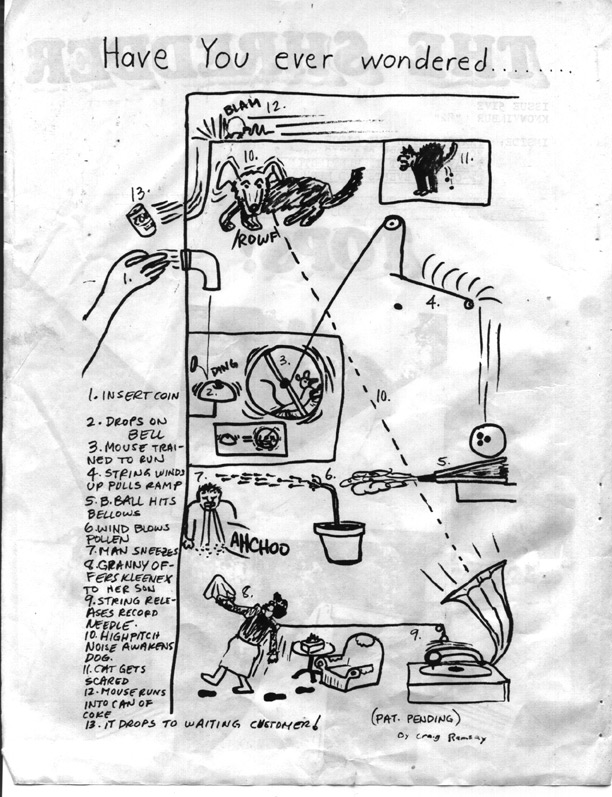 Have You ever wondered........
BLAM 12.
10.
11.
13.
ROWF
1.
4.
DING
3.
2.
10.
1. INSERT COIN
2. DROPS ON
BELL
3. MOUSE TRAI-
NED TO RUN
4. STRING WINDS
UP PULLS RAMP
5. B. BALL HITS
BELLOWS
6. WIND BLOWS
POLLEN
7. MAN SNEEZES
8. GRANNY OF-
FERS KLEENEX
TO HER SON
9. STRING RELE-
ASES RECORD
NEEDLE.
10. HIGH PITCH
NOISE AWAKENS
DOG.
11. CAT GETS
SCARED
12. MOUSE RUNS
INTO CAN OF
COKE
13. IT DROPS TO WAITING CUSTOMER!
5.
7.
6.
AHCHOO
8.
9.
(PAT. PENDING)
By Craig Ramsay